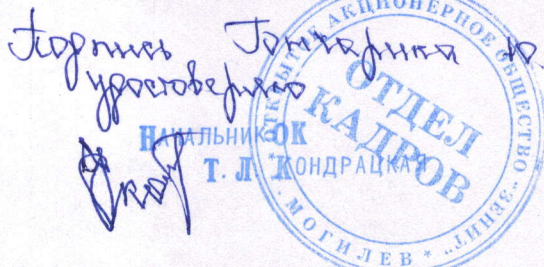 Подпись Гончарика Ю.
удостоверяю
НАЧАЛЬНИК ОК
Т. Л. КОНДРАЦКАЯ
ОТКРЫТОЕ АКЦИОНЕРНОЕ ОБЩЕСТВО "ЗЕНИТ"
* МОГИЛЕВ *
ОТДЕЛ
КАДРОВ